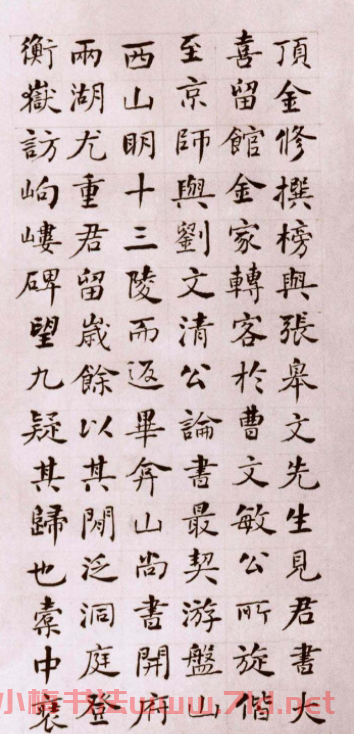 頂金修撰榜與張皋文先生見君書大
喜留館金家轉客於曹文敏公所旋偕
至京師與劉文清公論書最契游盤山
西山眀十三陵而返畢弇山尚書開府
兩湖尤重君留歲餘以其閒泛洞庭登
衡嶽訪岣嶁碑望九疑其歸也橐中裒